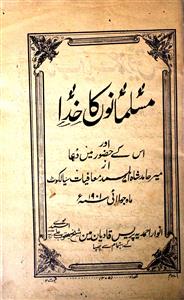 مسلمانوں کا خدا
اور
اس کے حضور میں دعا
از
میر حامد شاہ احمد معافیات سیالکوٹ
ماہ جولائی ۱۹۰۱ء
انوار احمدیہ پریس قادیان میں
کے اہتمام سے چھپا